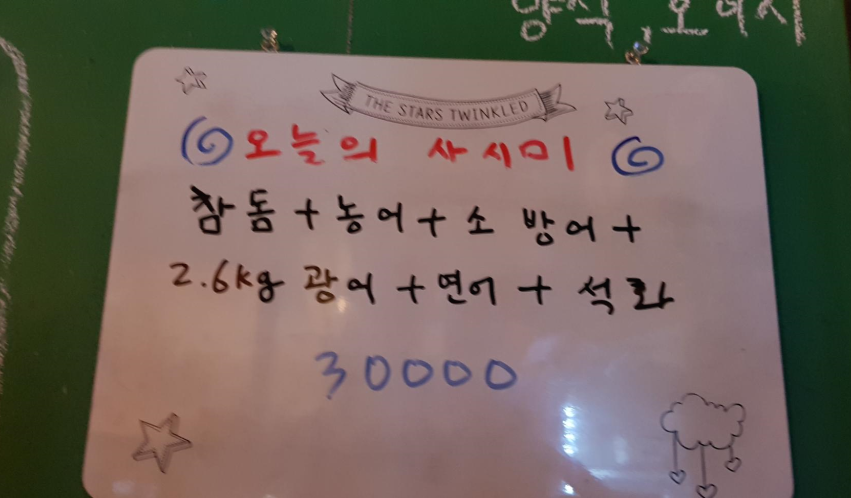 THE STARS TWINKLED
오늘의 사시미
참돔+농어+소 방어+
2.6kg 광어+연어+석화
30000